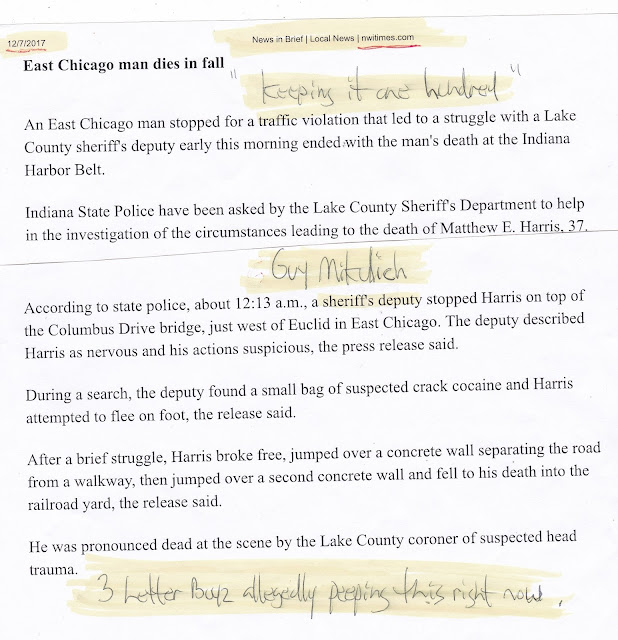 12/7/2017
News in Brief | Local News | nwitimes.com
East Chicago man dies in fall
"keeping it one hundred"
An East Chicago man stopped for a traffic violation that led to a struggle with a Lake
County sheriff's deputy early this morning ended with the man's death at the Indiana
Harbor Belt.
Indiana State Police have been asked by the Lake County Sheriff's Department to help
in the investigation of the circumstances leading to the death of Matthew E. Harris, 37.
Guy Mikulich
According to state police, about 12:13 a.m., a sheriff's deputy stopped Harris on top of
the Columbus Drive bridge, just west of Euclid in East Chicago. The deputy described
Harris as nervous and his actions suspicious, the press release said.
During a search, the deputy found a small bag of suspected crack cocaine and Harris
attempted to flee on foot, the release said.
After a brief struggle, Harris broke free, jumped over a concrete wall separating the road
from a walkway, then jumped over a second concrete wall and fell to his death into the
railroad yard, the release said.
He was pronounced dead at the scene by the Lake County coroner of suspected head
trauma.
3 Letter Boyz allegedly peeping this right now.